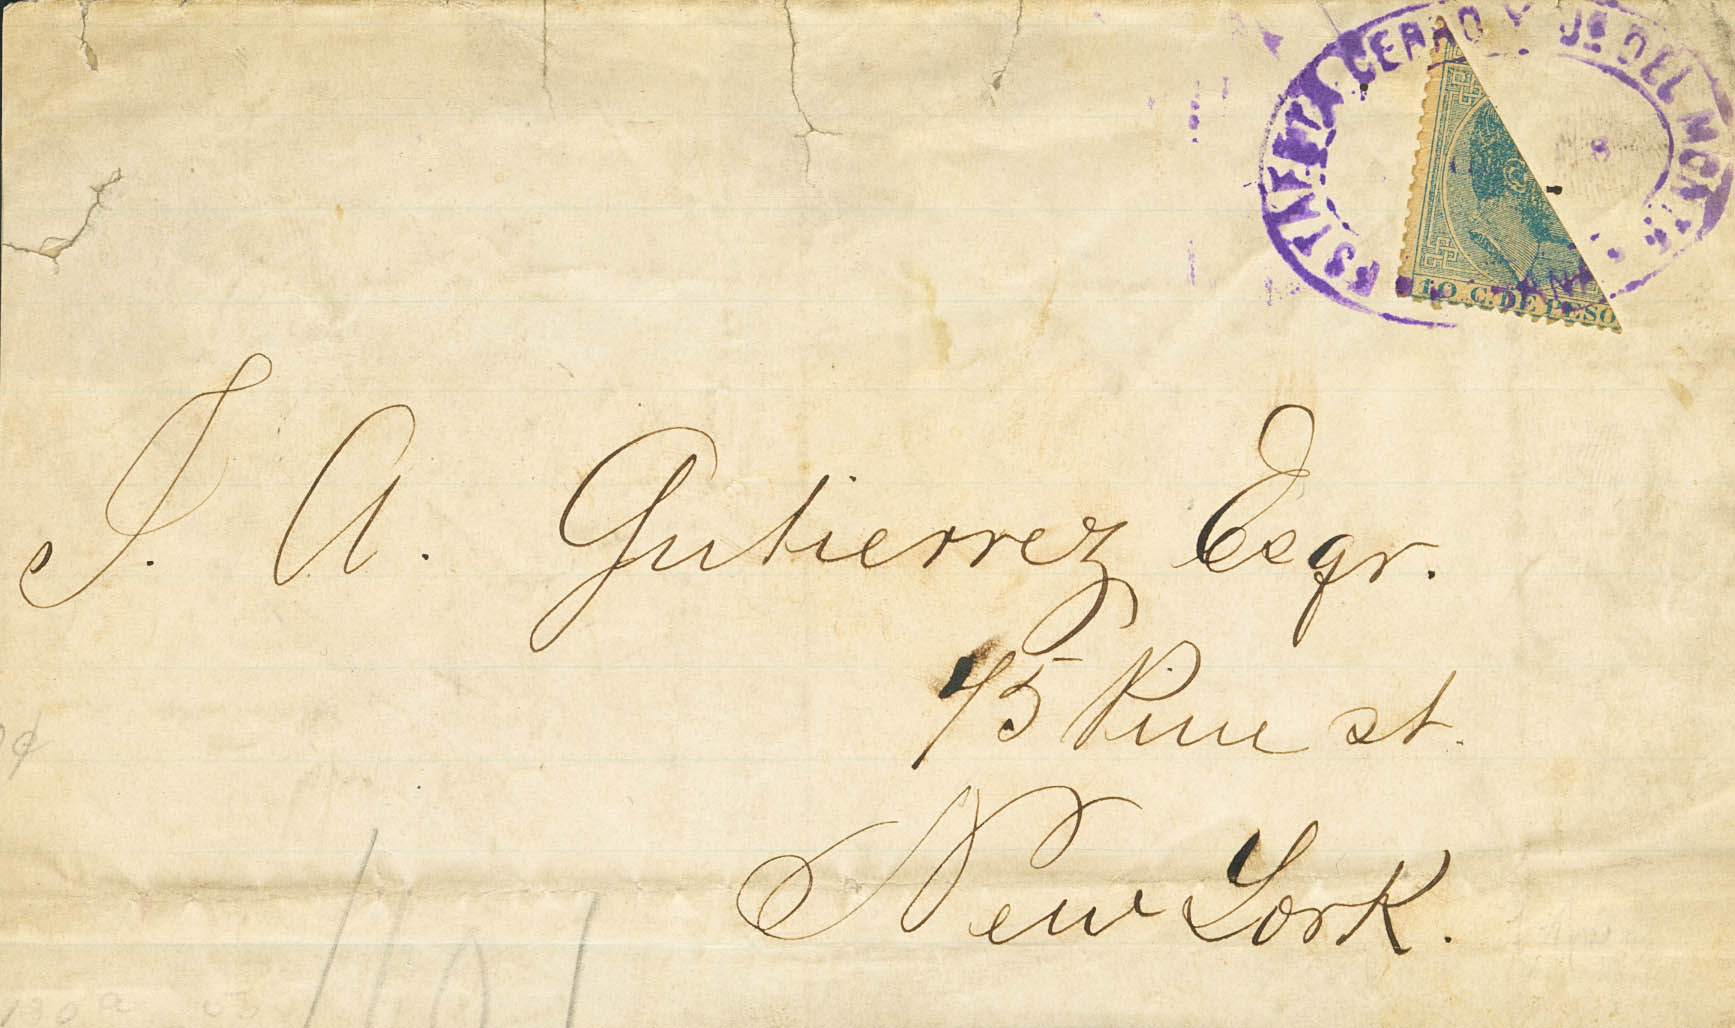 ESTAFETA CERRO Y Js DEL MONTE
10 C. DE PESO
J. A. Gutierrez Esqr.
45 Pine st.
New York.